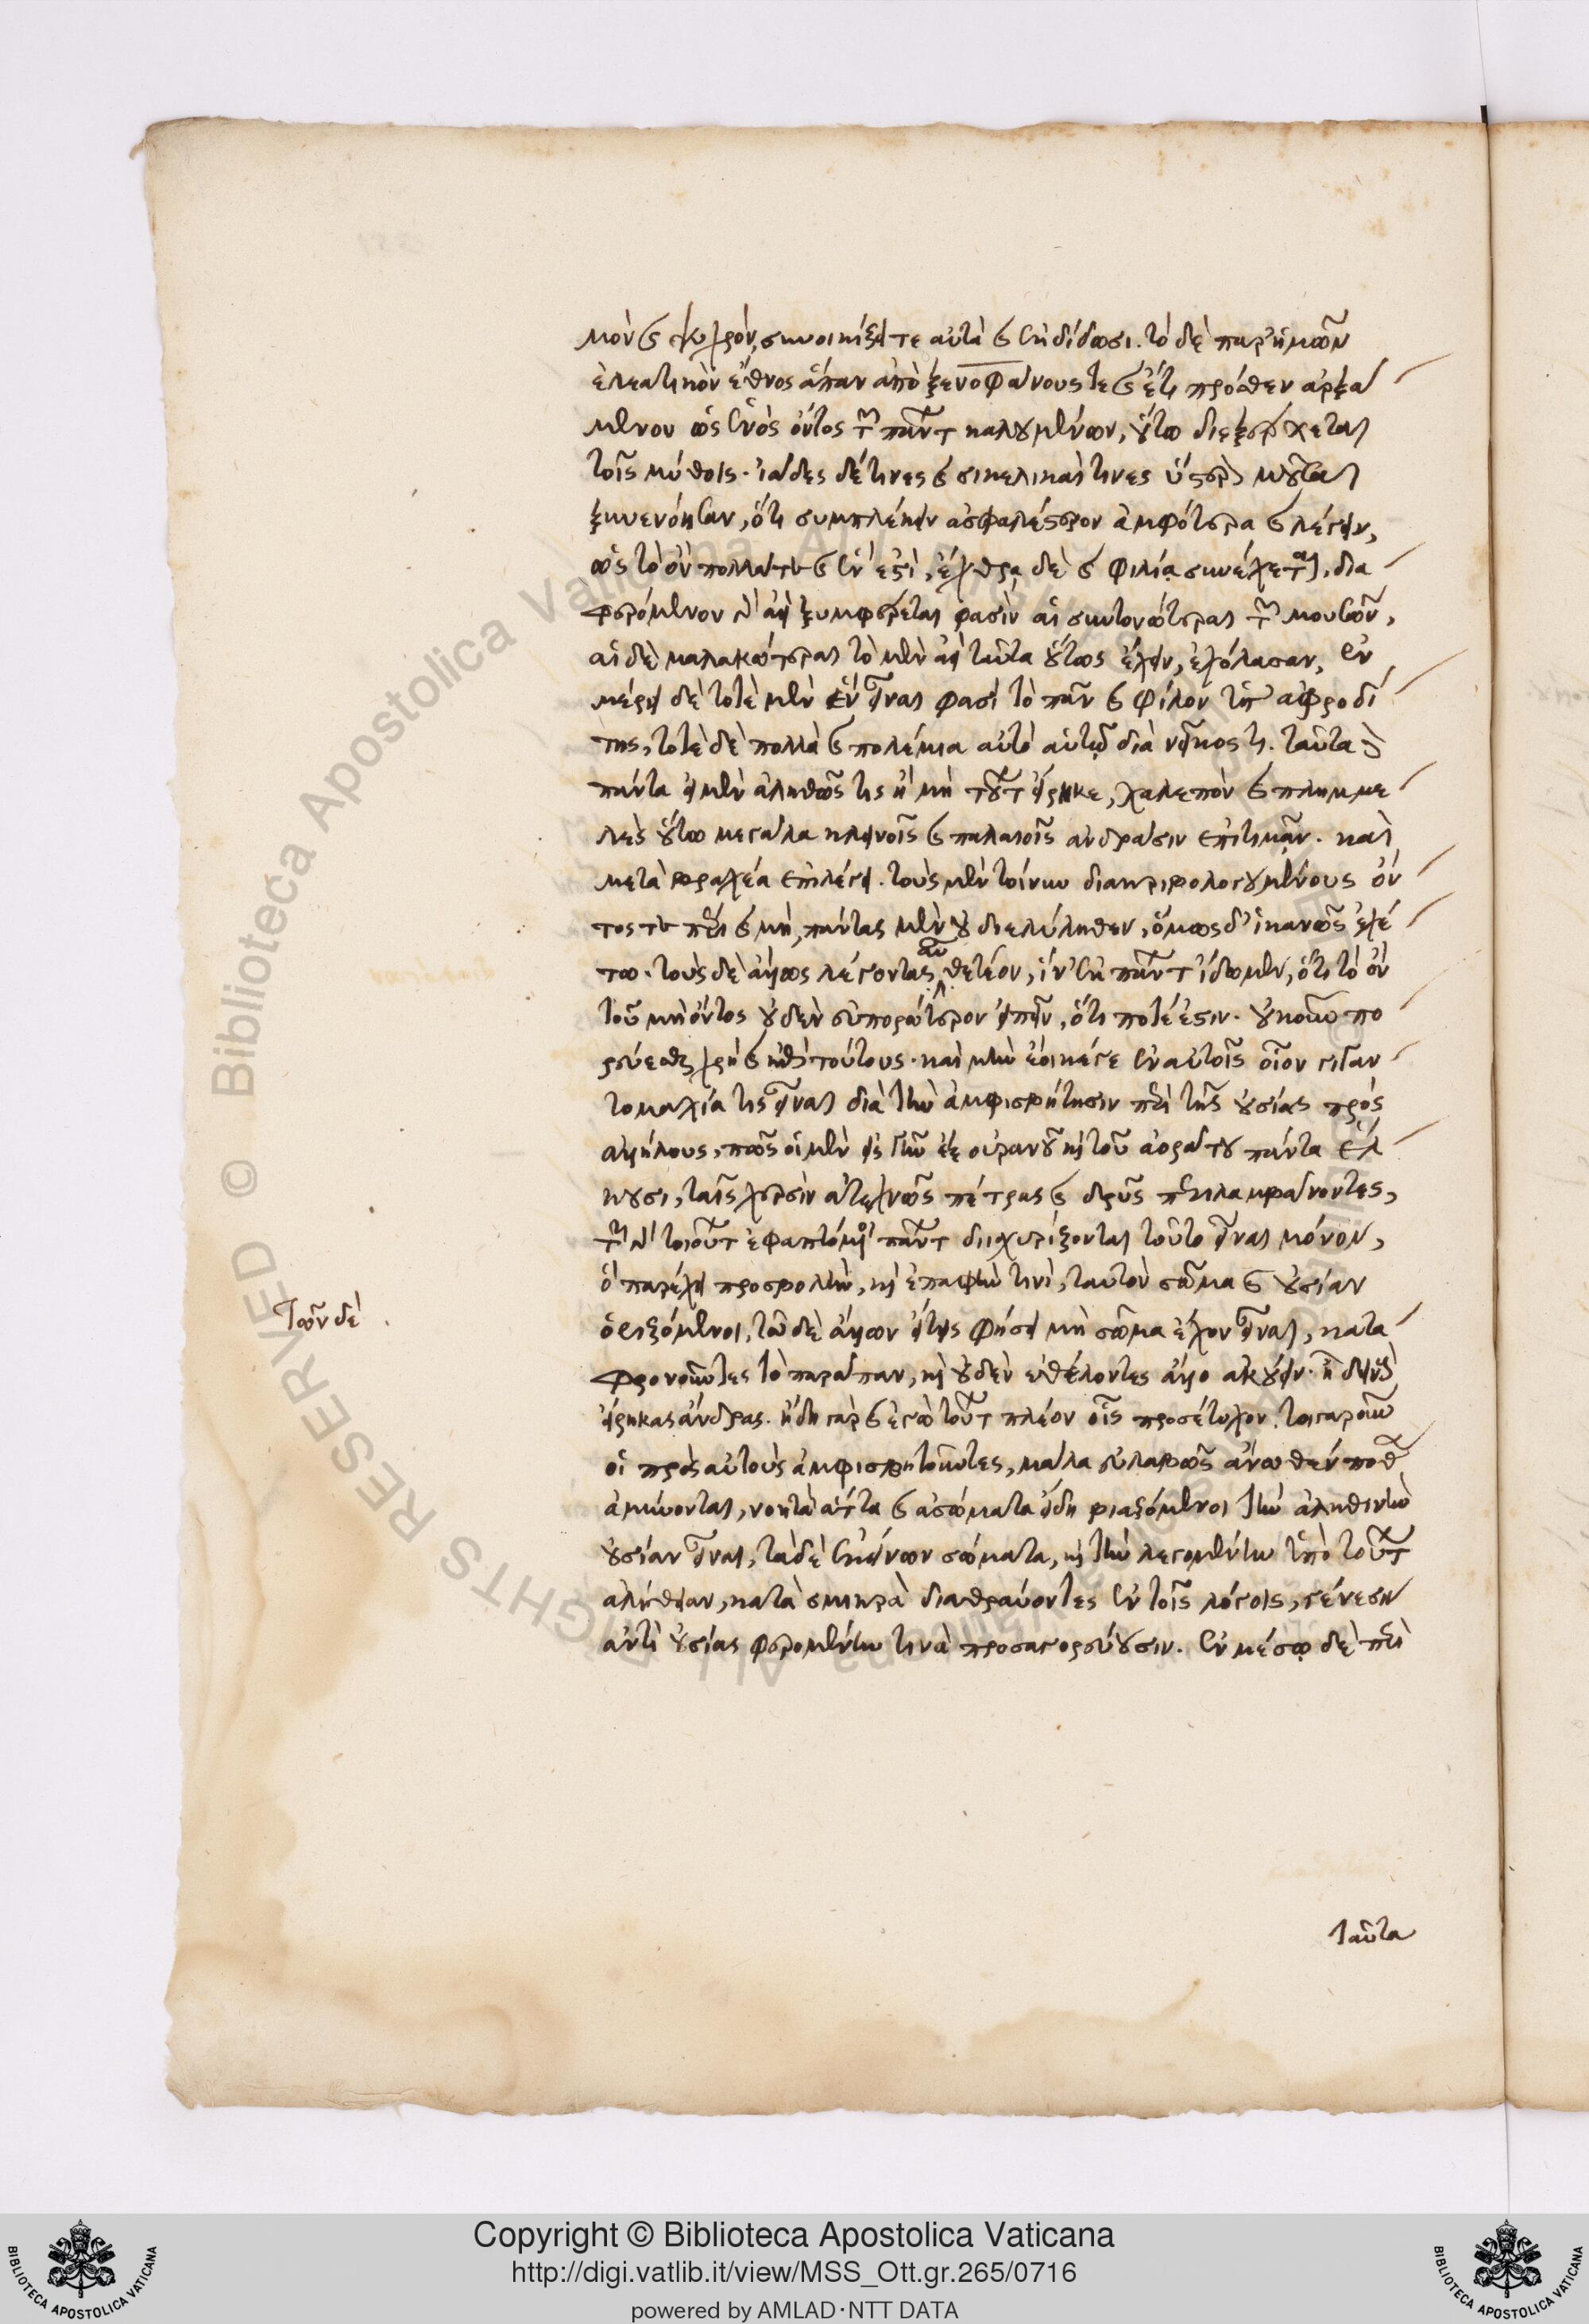 μὸν καὶ ψυχρόν, συνοικίζει τε αὐτὰ καὶ ἐκδίδωσι. τὸ δὲ παρ' ἡμῶν
ἐλεατικὸν ἔθνος ἅπαν ἀπὸ ξενοφάνους τε καὶ ἔτι πρόσθεν ἀρξά
μενον ὡς ἑνὸς ὄντος τῶν πάντων καλουμένων, οὕτω διεξέρχεται
τοῖς μύθοις. ἰάδες δέ τινες καὶ σικελικαί τινες ὕστερον μοῦσαι
ξυνενόησαν, ὅτι συμπλέκειν ἀσφαλέστερον ἀμφότερα καὶ λέγειν,
ὡς τὸ ὂν πολλά τε καὶ ἕν ἐστι, ἔχθρᾳ δὲ καὶ φιλίᾳ συνέχεται, δια
φερόμενον δ' ἀεὶ ξυμφέρεται φασὶν αἱ συντονώτεραι τῶν μουσῶν,
αἱ δὲ μαλακώτεραι τὸ μὲν ἀεὶ ταῦτα οὕτως ἔχειν, ἐχόλασαν, ἐν
μέρει δὲ τοτὲ μὲν ἓν εἶναι φασὶ τὸ πᾶν καὶ φίλον ὑπ' ἀφροδί
της, τοτὲ δὲ πολλὰ καὶ πολέμια αὐτὸ αὑτῷ διὰ νεῖκος τι. ταῦτα δὲ
πάντα εἰ μὲν ἀληθῶς τις ἢ μὴ τούτων εἴρηκε, χαλεπὸν καὶ πλημμε
λὲς οὕτω μεγάλα κλεινοῖς καὶ παλαιοῖς ἀνδράσιν ἐπιτιμᾶν. καὶ
μετὰ βραχέα ἐπιλέγει. τοὺς μὲν τοίνυν διακριβολογουμένους ὄν
τος τε πέρι καὶ μὴ, πάντας μὲν οὐ διελύληθεν, ὅμως δ' ἱκανῶς ἐχέ
τω. τοὺς δὲ ἄλλως λέγοντας αὖ θετέον, ἵν' ἐκ πάντων ἴδωμεν, ὅτι τὸ ὂν
τοῦ μὴ ὄντος οὐδὲν εὐπορώτερον εἰπεῖν, ὅτι ποτέ ἐστιν. οὐκοῦν πο
ρεύεσθαι χρὴ καὶ ἐπὶ τούτους. καὶ μὴν ἔοικέ γε ἐν αὐτοῖς οἷον γιγαν
τομαχία τις εἶναι διὰ τὴν ἀμφισβήτησιν περὶ τῆς οὐσίας πρὸς
ἀλλήλους, πῶς οἱ μὲν εἰς γῆν ἐξ οὐρανοῦ καὶ τοῦ ἀοράτου πάντα ἕλ
κουσι, ταῖς χερσὶν ἀτεχνῶς πέτρας καὶ δρῦς περιλαμβάνοντες,
τῶν δὲ τοιούτων ἐφαπτόμενοι πάντων διισχυρίζονται τοῦτο εἶναι μόνον,
ὃ παρέχει προσβολὴν, καὶ ἐπαφὴν τινὶ, ταυτὸν σῶμα καὶ οὐσίαν
ὁριζόμενοι, τῶν δὲ ἄλλων εἴ τις φήσει μὴ σῶμα ἔχον εἶναι, κατα
φρονοῦντες τὸ παράπαν, καὶ οὐδὲν ἐθέλοντες ἄλλο ἀκούειν. ἦ δεινοὺς
εἴρηκας ἄνδρας. ἤδη γὰρ καὶ ἐγὼ τούτων πλέον οἷς προσέτυχον. τοιγαροῦν
οἱ πρὸς αὐτοὺς ἀμφισβητοῦντες, μάλα εὐλαβῶς ἄνωθέν ποθεν
ἀμύνονται, νοητὰ ἄττα καὶ ἀσώματα εἴδη βιαζόμενοι τὴν ἀληθινὴν
οὐσίαν εἶναι, τὰ δὲ ἐκείνων σώματα, καὶ τὴν λεγομένην ὑπὸ τούτων
ἀλήθειαν, κατὰ σμικρὰ διαθραύοντες ἐν τοῖς λόγοις, γένεσιν
ἀντὶ οὐσίας φερομένην τινὰ προσαγορεύουσιν. ἐν μέσῳ δὲ περὶ
Τῶν δὲ
ταῦτα
Copyright © Biblioteca Apostolica Vaticana
http://digi.vatlib.it/view/MSS_Ott.gr.265/0716
powered by AMLAD·NTT DATA